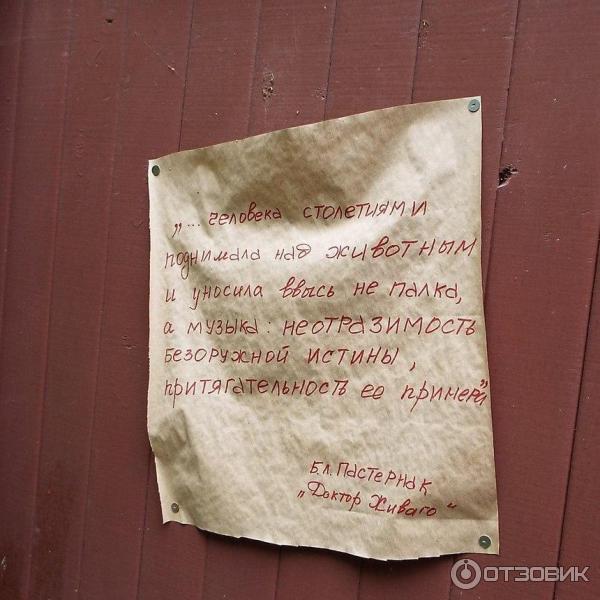 „... человека столетиями
поднимала над животным
и уносила ввысь не палка,
а музыка: неотразимость
безоружной истины,
притягательность ее примера"
Б.Л. Пастернак
„Доктор Живаго"
ОТЗОВИК